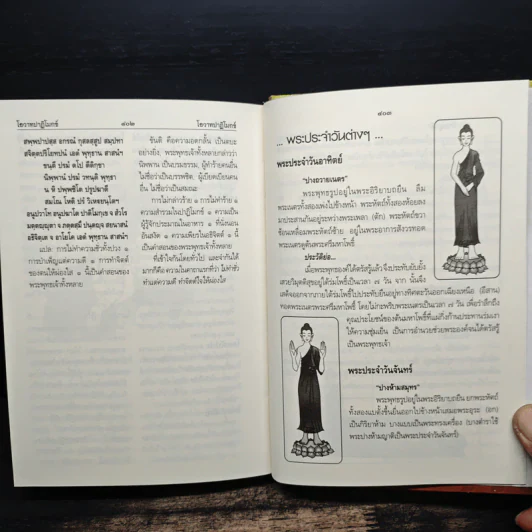 โอวาทปาฏิโมกข์
๔๐๒
โอวาทปาฏิโมกข์
สพฺพปาปสฺส อกรณํ กุสลสฺสูปสมฺปทา
สจิตฺตปริโยทปนํ เอตํ พุทฺธาน สาสนํฯ
ขนฺตี ปรมํ ตโป ตีติกฺขา
นิพฺพานํ ปรมํ วทนฺติ พุทฺธา
น หิ ปพฺพชิโต ปรูปฆาตี
สมโณ โหติ ปรํ วิเหฐยนฺโตฯ
อนูปวาโท อนูปฆาโต ปาติโมกฺเข จ สํวโร
มตฺตญฺญุตา จ ภตฺตสฺมึ ปนฺตญฺจ สยนาสนํ
อธิจิตฺเต จ อาโยโค เอตํ พุทฺธาน สาสนํฯ
แปล: การไม่ทำความชั่วทั้งปวง ๑
การบำเพ็ญแต่ความดี ๑ การทำจิตต์
ของตนให้ผ่องใส ๑ นี้เป็นคำสอนของ
พระพุทธเจ้าทั้งหลาย
ขันติ คือความอดกลั้น เป็นตบะ
อย่างยิ่ง, พระพุทธเจ้าทั้งหลายกล่าวว่า
นิพพาน เป็นบรมธรรม, ผู้ทำร้ายคนอื่น
ไม่ชื่อว่าเป็นบรรพชิต, ผู้เบียดเบียนคน
อื่น ไม่ชื่อว่าเป็นสมณะ
การไม่กล่าวร้าย ๑ การไม่ทำร้าย ๑
ความสำรวมในปาฏิโมกข์ ๑ ความเป็น
ผู้รู้จักประมาณในอาหาร ๑ ที่นั่งนอน
อันสงัด ๑ ความเพียรในอธิจิตต์ ๑ นี้
เป็นคำสอนของพระพุทธเจ้าทั้งหลาย
ที่เข้าใจกันโดยทั่วไป และจำกันได้
มากก็คือ ความในคาถาแรกที่ว่า ไม่ทำชั่ว
ทำแต่ความดี ทำจิตต์ใจให้ผ่องใส
๔๐๓
... พระประจำวันต่างๆ ...
พระประจำวันอาทิตย์
"ปางถวายเนตร"
พระพุทธรูปอยู่ในพระอิริยาบถยืน ลืม
พระเนตรทั้งสองเพ่งไปข้างหน้า พระหัตถ์ทั้งสองห้อยลง
มาประสานกันอยู่ระหว่างพระเพลา (ตัก) พระหัตถ์ขวา
ซ้อนเหลื่อมพระหัตถ์ซ้าย อยู่ในพระอาการสังวรทอด
พระเนตรดูต้นพระศรีมหาโพธิ์
ประวัติย่อ...
เมื่อพระพุทธองค์ได้ตรัสรู้แล้วจึงประทับยับยั้ง
เสวยวิมุตติสุขอยู่ใต้ร่มโพธิ์เป็นเวลา ๗ วัน จาก นั้นจึง
เสด็จออกจากภายใต้ร่มโพธิ์ไปประทับยืนอยู่ทางทิศตะวันออกเฉียงเหนือ (อีสาน)
ทอดพระเนตรพระศรีมหาโพธิ์ โดยไม่กะพริบพระเนตรเป็นเวลา ๗ วัน เพื่อรำลึกถึง
คุณประโยชน์ของต้นมหาโพธิ์ที่แผ่กิ่งก้านประทานร่มเงา
ให้ความชุ่มเย็น เป็นการอำนวยช่วยพระองค์จนได้ตรัสรู้
เป็นพระพุทธเจ้า
พระประจำวันจันทร์
"ปางห้ามสมุทร"
พระพุทธรูปอยู่ในพระอิริยาบถยืน ยกพระหัตถ์
ทั้งสองแบตั้งขึ้นยื่นออกไปข้างหน้าเสมอพระอุระ (อก)
เป็นกิริยาห้าม บางแบบเป็นพระทรงเครื่อง (บางตำราใช้
พระปางห้ามญาติเป็นพระประจำวันจันทร์)